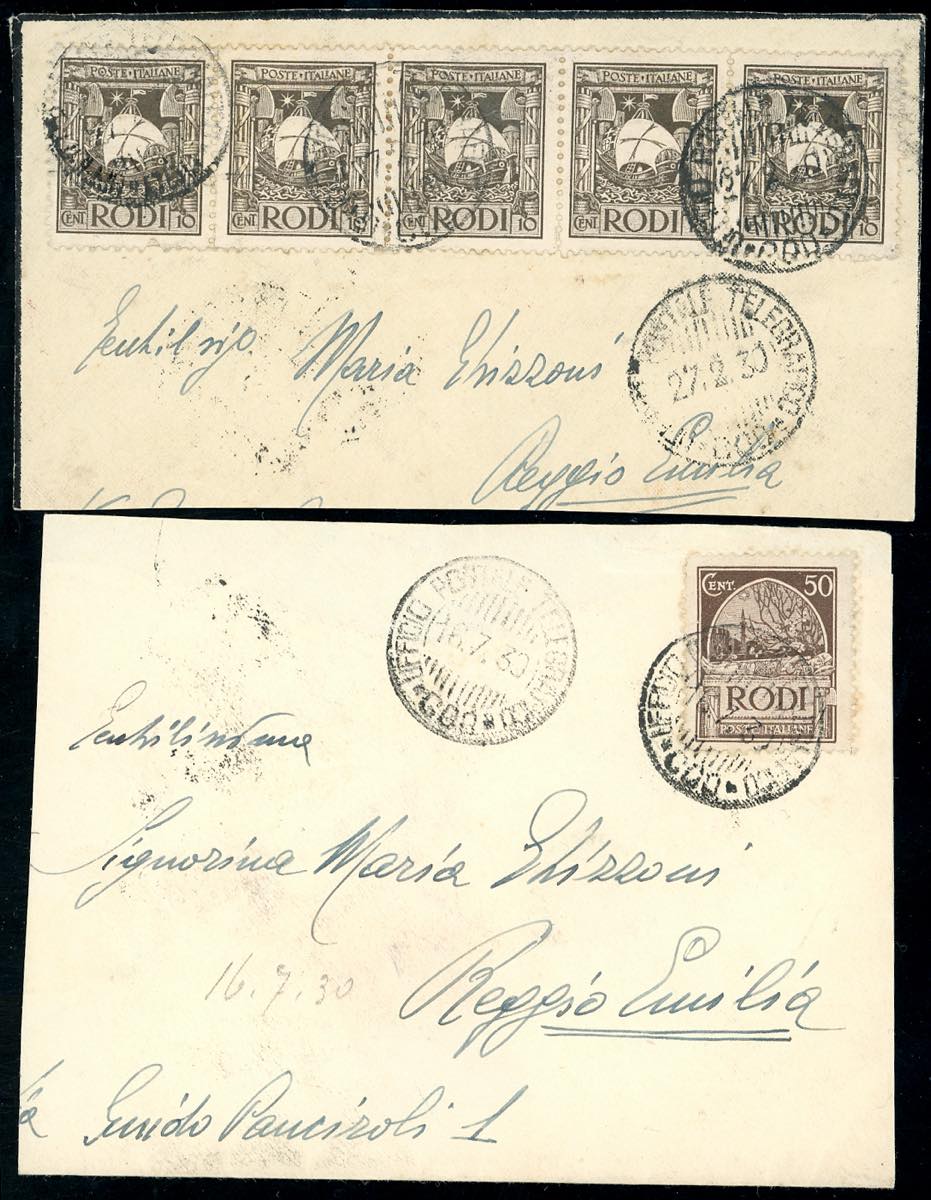 POSTE·ITALIANE POSTE·ITALIANE POSTE·ITALIANE POSTE·ITALIANE POSTE·ITALIANE
CENT RODI 10 CENT RODI 10 CENT RODI 10 CENT RODI 10 RODI 10
POSTALE TELEGRAFICO
27.2.30
Maria Ghizzoni
Reggio Emilia
CENT. 50
RODI
POSTE ITALIANE
UFFICIO POSTALE
16.7.30
COO
UFFICIO
COO
Gentilissima
Signorina Maria Ghizzoni
16.7.30
Reggio Emilia
Guido Panciroli 1